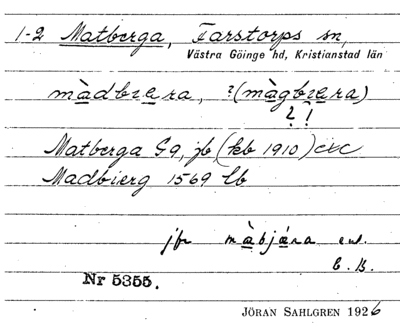 1-2 Matberga, Farstorps sn,
Västra Göinge hd, Kristianstad län
màdbɪera, ?(màgbɪera)
? !
Matberga G9, jb (kb 1910) etc
Madbierg 1569 lb
jfr màbjára enl.
E. B.
Nr 5355.
JÖRAN SAHLGREN 1926